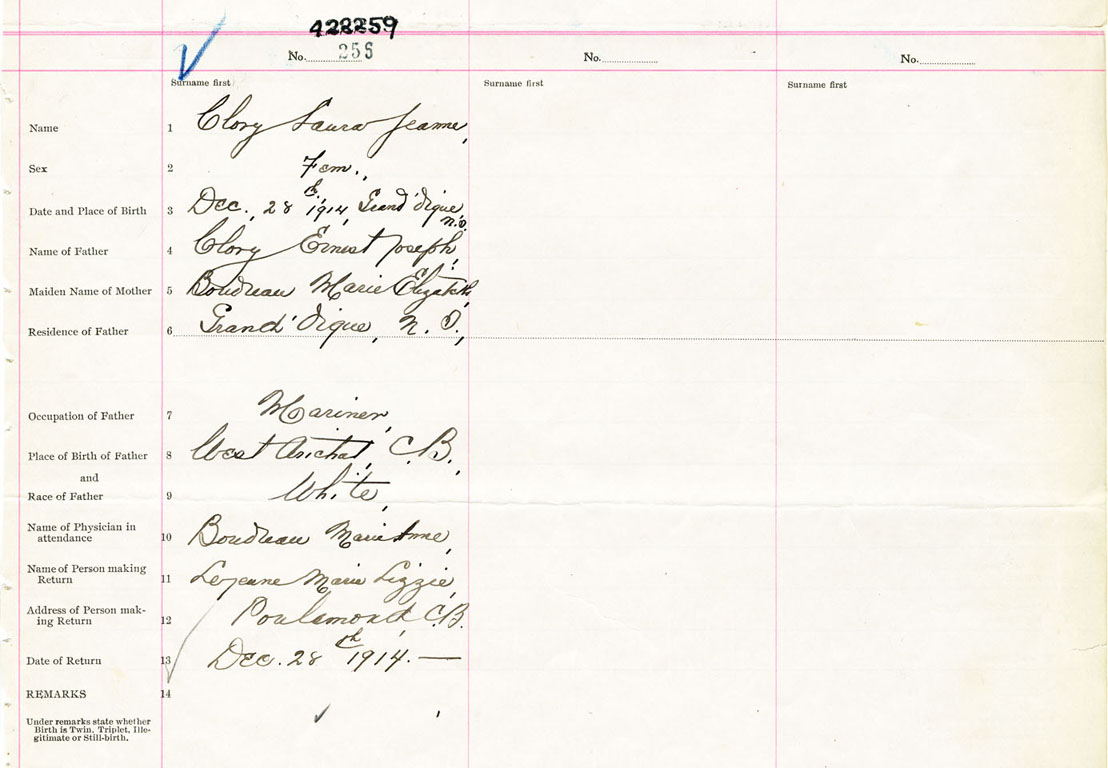 428259
No. 256 No. No.
Surname first Surname first Surname first
Name 1 Clory Laura Jeanne,
Sex 2 Fem.,
Date and Place of Birth 3 Dec., 28th 1914, Grand'Digue, N.S.
Name of Father 4 Clory Ernest Joseph,
Maiden Name of Mother 5 Boudreau Marie Elizabeth,
Residence of Father 6 Grand'Digue, N. S.,
Occupation of Father 7 Mariner,
Place of Birth of Father 8 West Arichat, C.B.,
and
Race of Father 9 White,
Name of Physician in
attendance 10 Boudreau Marie Anne,
Name of Person making
Return 11 Lejeune Marie Lizzie,
Address of Person mak-
ing Return 12 Poulamond, C.B.
Date of Return 13 Dec. 28th 1914. —
REMARKS 14
Under remarks state whether
Birth is Twin, Triplet, Ille-
gitimate or Still-birth.